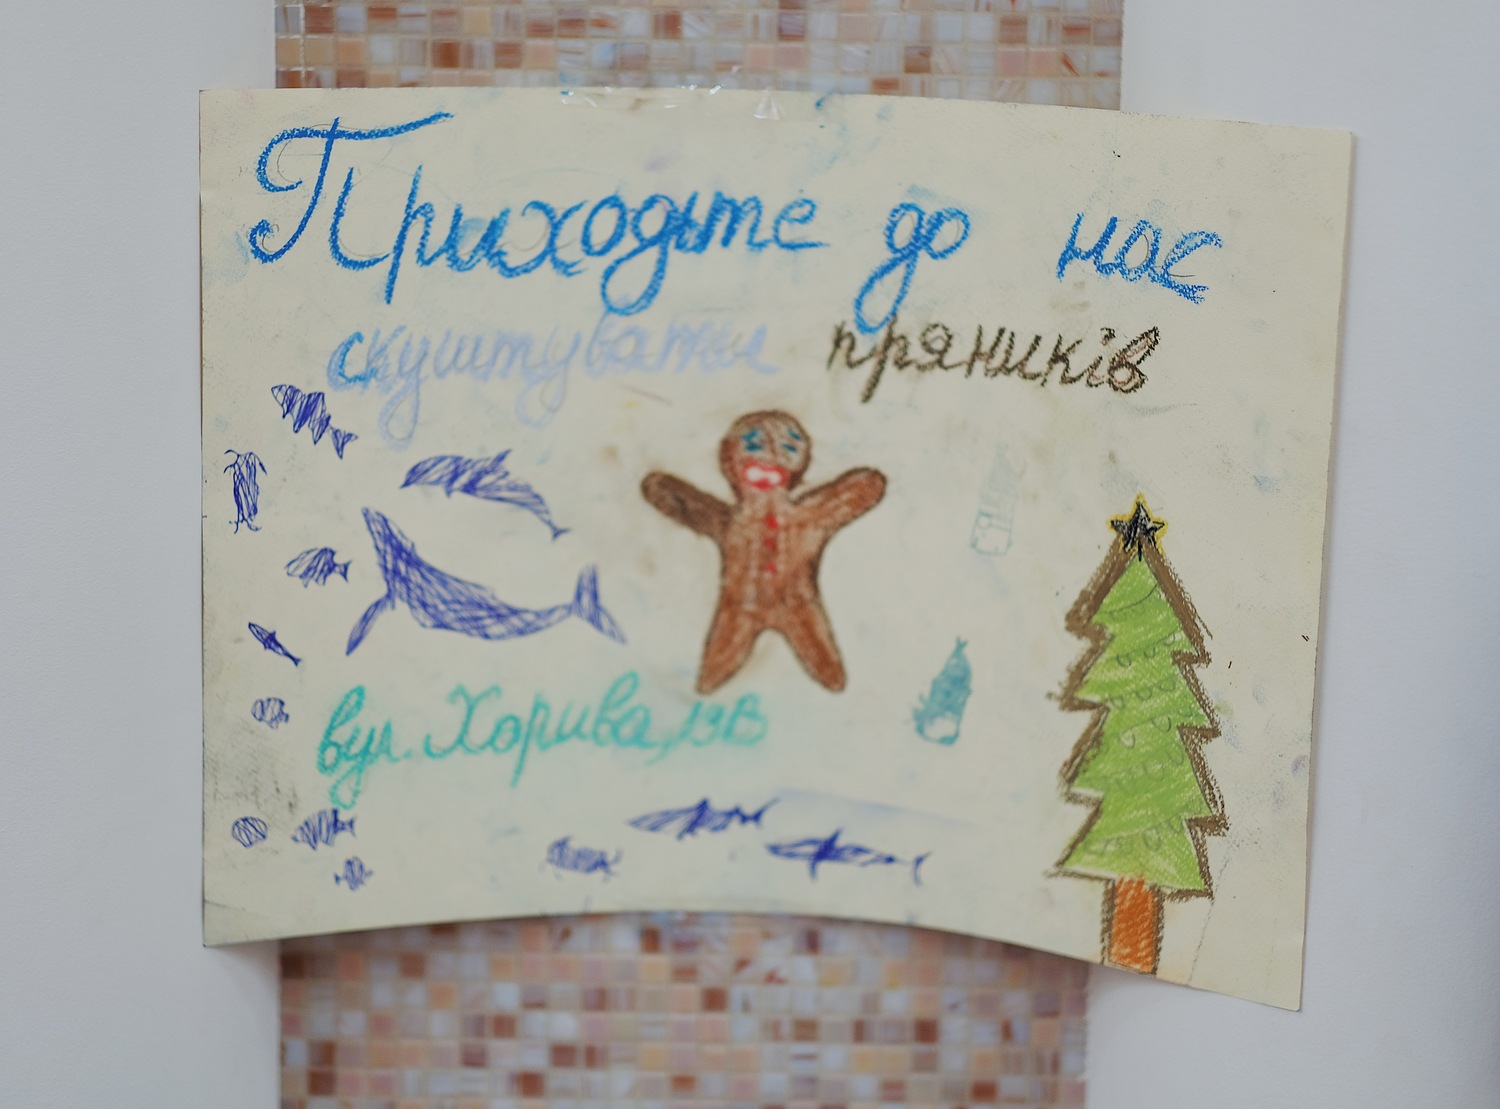 Приходьте до нас
скуштувати пряників
вул. Хорива, 19В